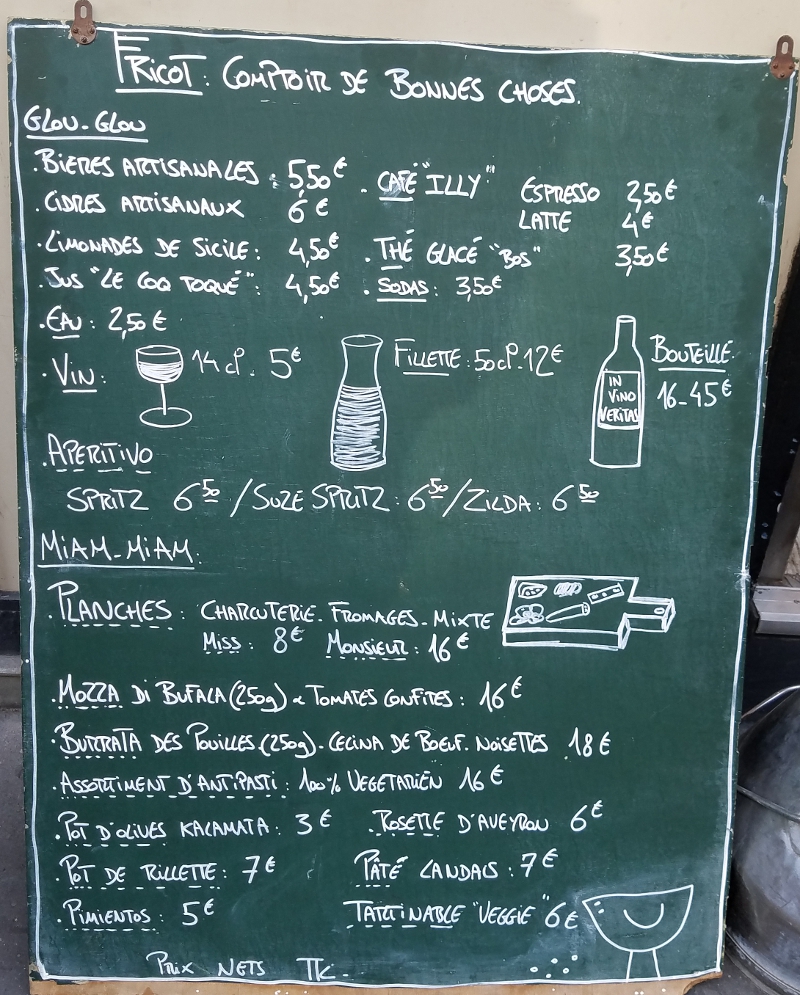 FRICOT : COMPTOIR DE BONNES CHOSES.
GLOU-GLOU
. BIERES ARTISANALES : 5,50€
. CIDRES ARTISANAUX 6€
. CAFÉ "ILLY" ESPRESSO 2,50€
LATTE 4€
. LIMONADES DE SICILE : 4,50€
. THÉ GLACÉ "BOS" 3,50€
. JUS "LE COQ TOQUÉ" : 4,50€
. SODAS : 3,50€
. EAU : 2,50€
. VIN :
14 cl. 5€
FILLETTE : 50 cl. 12€
IN
VINO
VERITAS
BOUTEILLE
16-45€
. APERITIVO
SPRITZ 6 50 / SUZE SPRITZ : 6 50 / ZILDA : 6 50
MIAM-MIAM :
. PLANCHES : CHARCUTERIE. FROMAGES - MIXTE
MISS : 8€ MONSIEUR : 16€
. MOZZA DI BUFALA (250g) & TOMATES CONFITES : 16€
. BURRATA DES POUILLES (250g). CECINA DE BOEUF. NOISETTES 18€
. ASSORTIMENT D'ANTIPASTI : 100% VEGETARIEN 16€
. POT D'OLIVES KALAMATA : 3€ . ROSETTE D'AVEYRON 6€
. POT DE RILLETTE : 7€ PÂTÉ LANDAIS : 7€
. PIMIENTOS : 5€ TARTINABLE "VEGGIE" 6€
PRIX NETS TTC.